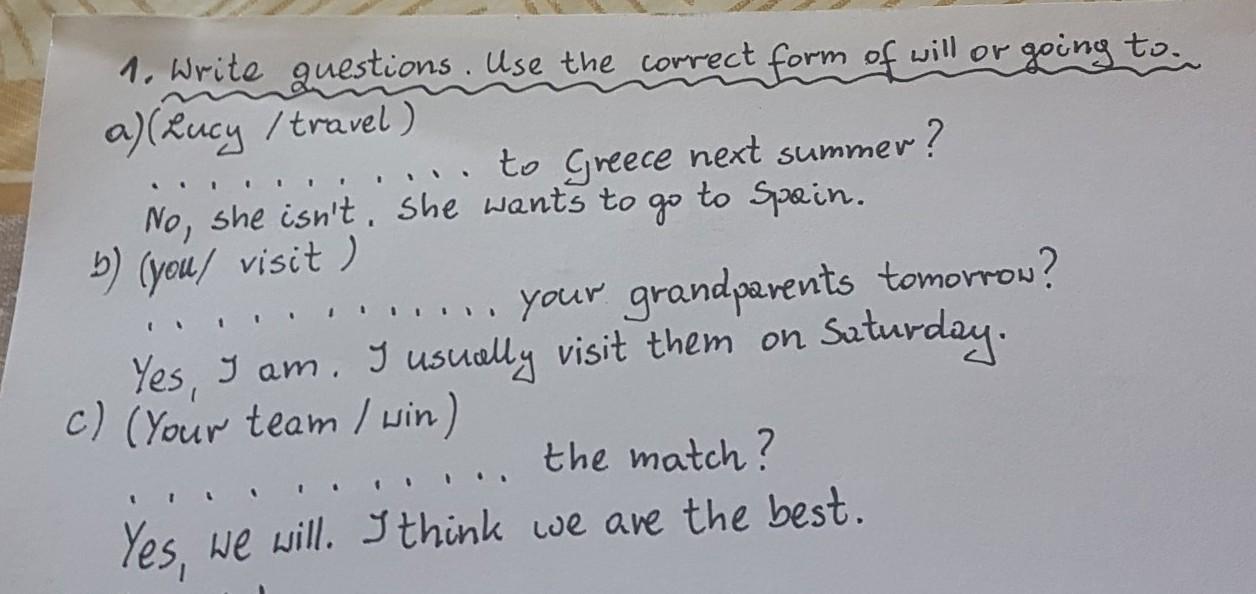 1. Write questions. Use the correct form of will or going to.
a) (Lucy / travel)
............ to Greece next summer?
No, she isn't. She wants to go to Spain.
b) (you/ visit)
............. your grandparents tomorrow?
Yes, I am. I usually visit them on Saturday.
c) (Your team / win)
............ the match?
Yes, we will. I think we are the best.